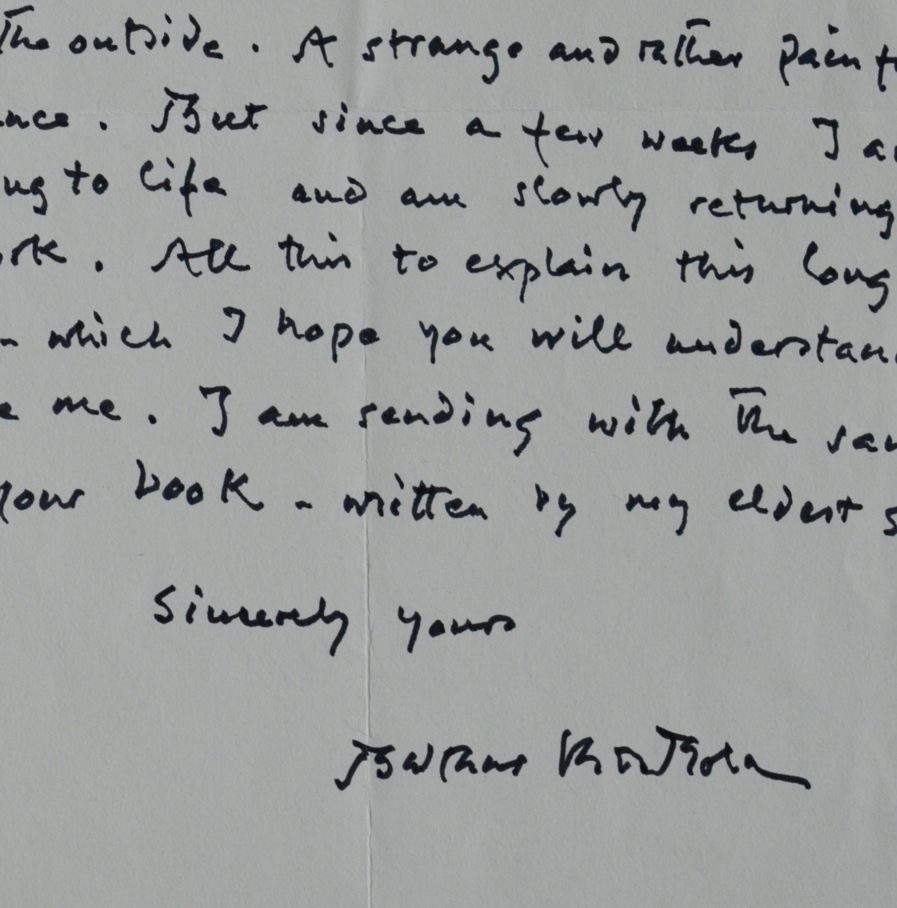 The outside. A strange and rather painf
nce. But since a few weeks I a
ng to life and am slowly returning
ork. All this to explain this long
- which I hope you will understan
e me. I am sending with the sa
your book - written by my eldest s
Sincerely yours
Balthus